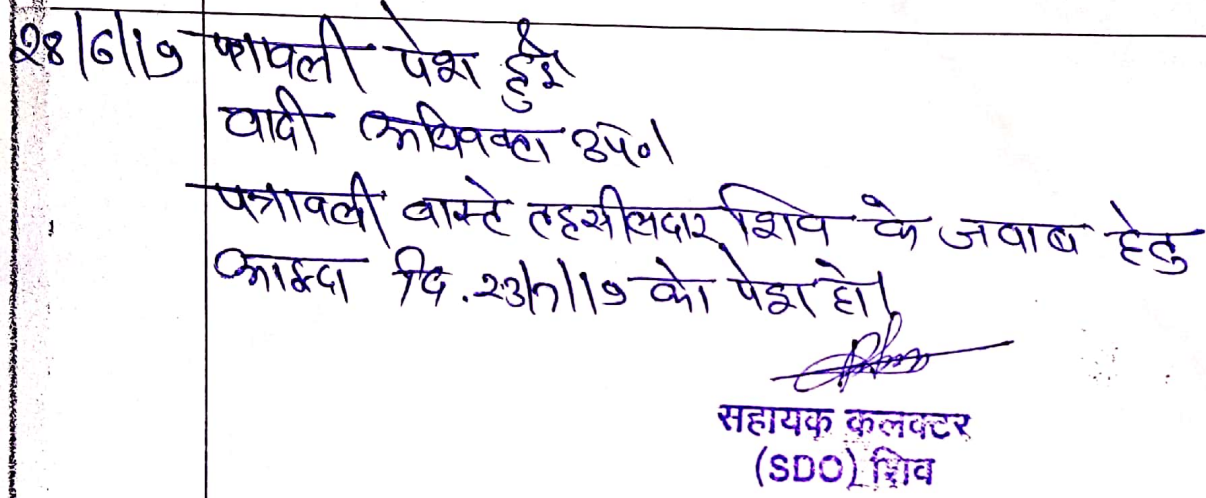 28/6/19 पत्रावली पेश हुई
वादी अधिवक्ता उप०।
पत्रावली वास्ते तहसीलदार शिव के जवाब हेतु
आईन्दा दि. 23/7/19 को पेश हो।
सहायक कलक्टर
(SDO) शिव